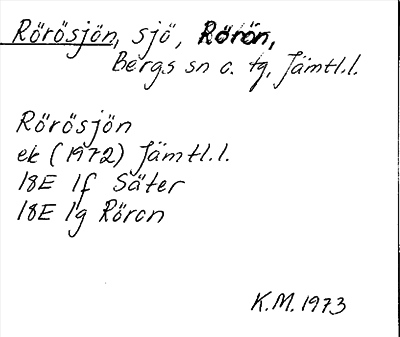 Rörösjön, sjö, Rörön,
Bergs sn o. tg, Jämtl.l.
Rörösjön
ek (1972) Jämtl.l.
18E 1f Säter
18E 1g Röron
K.M. 1973